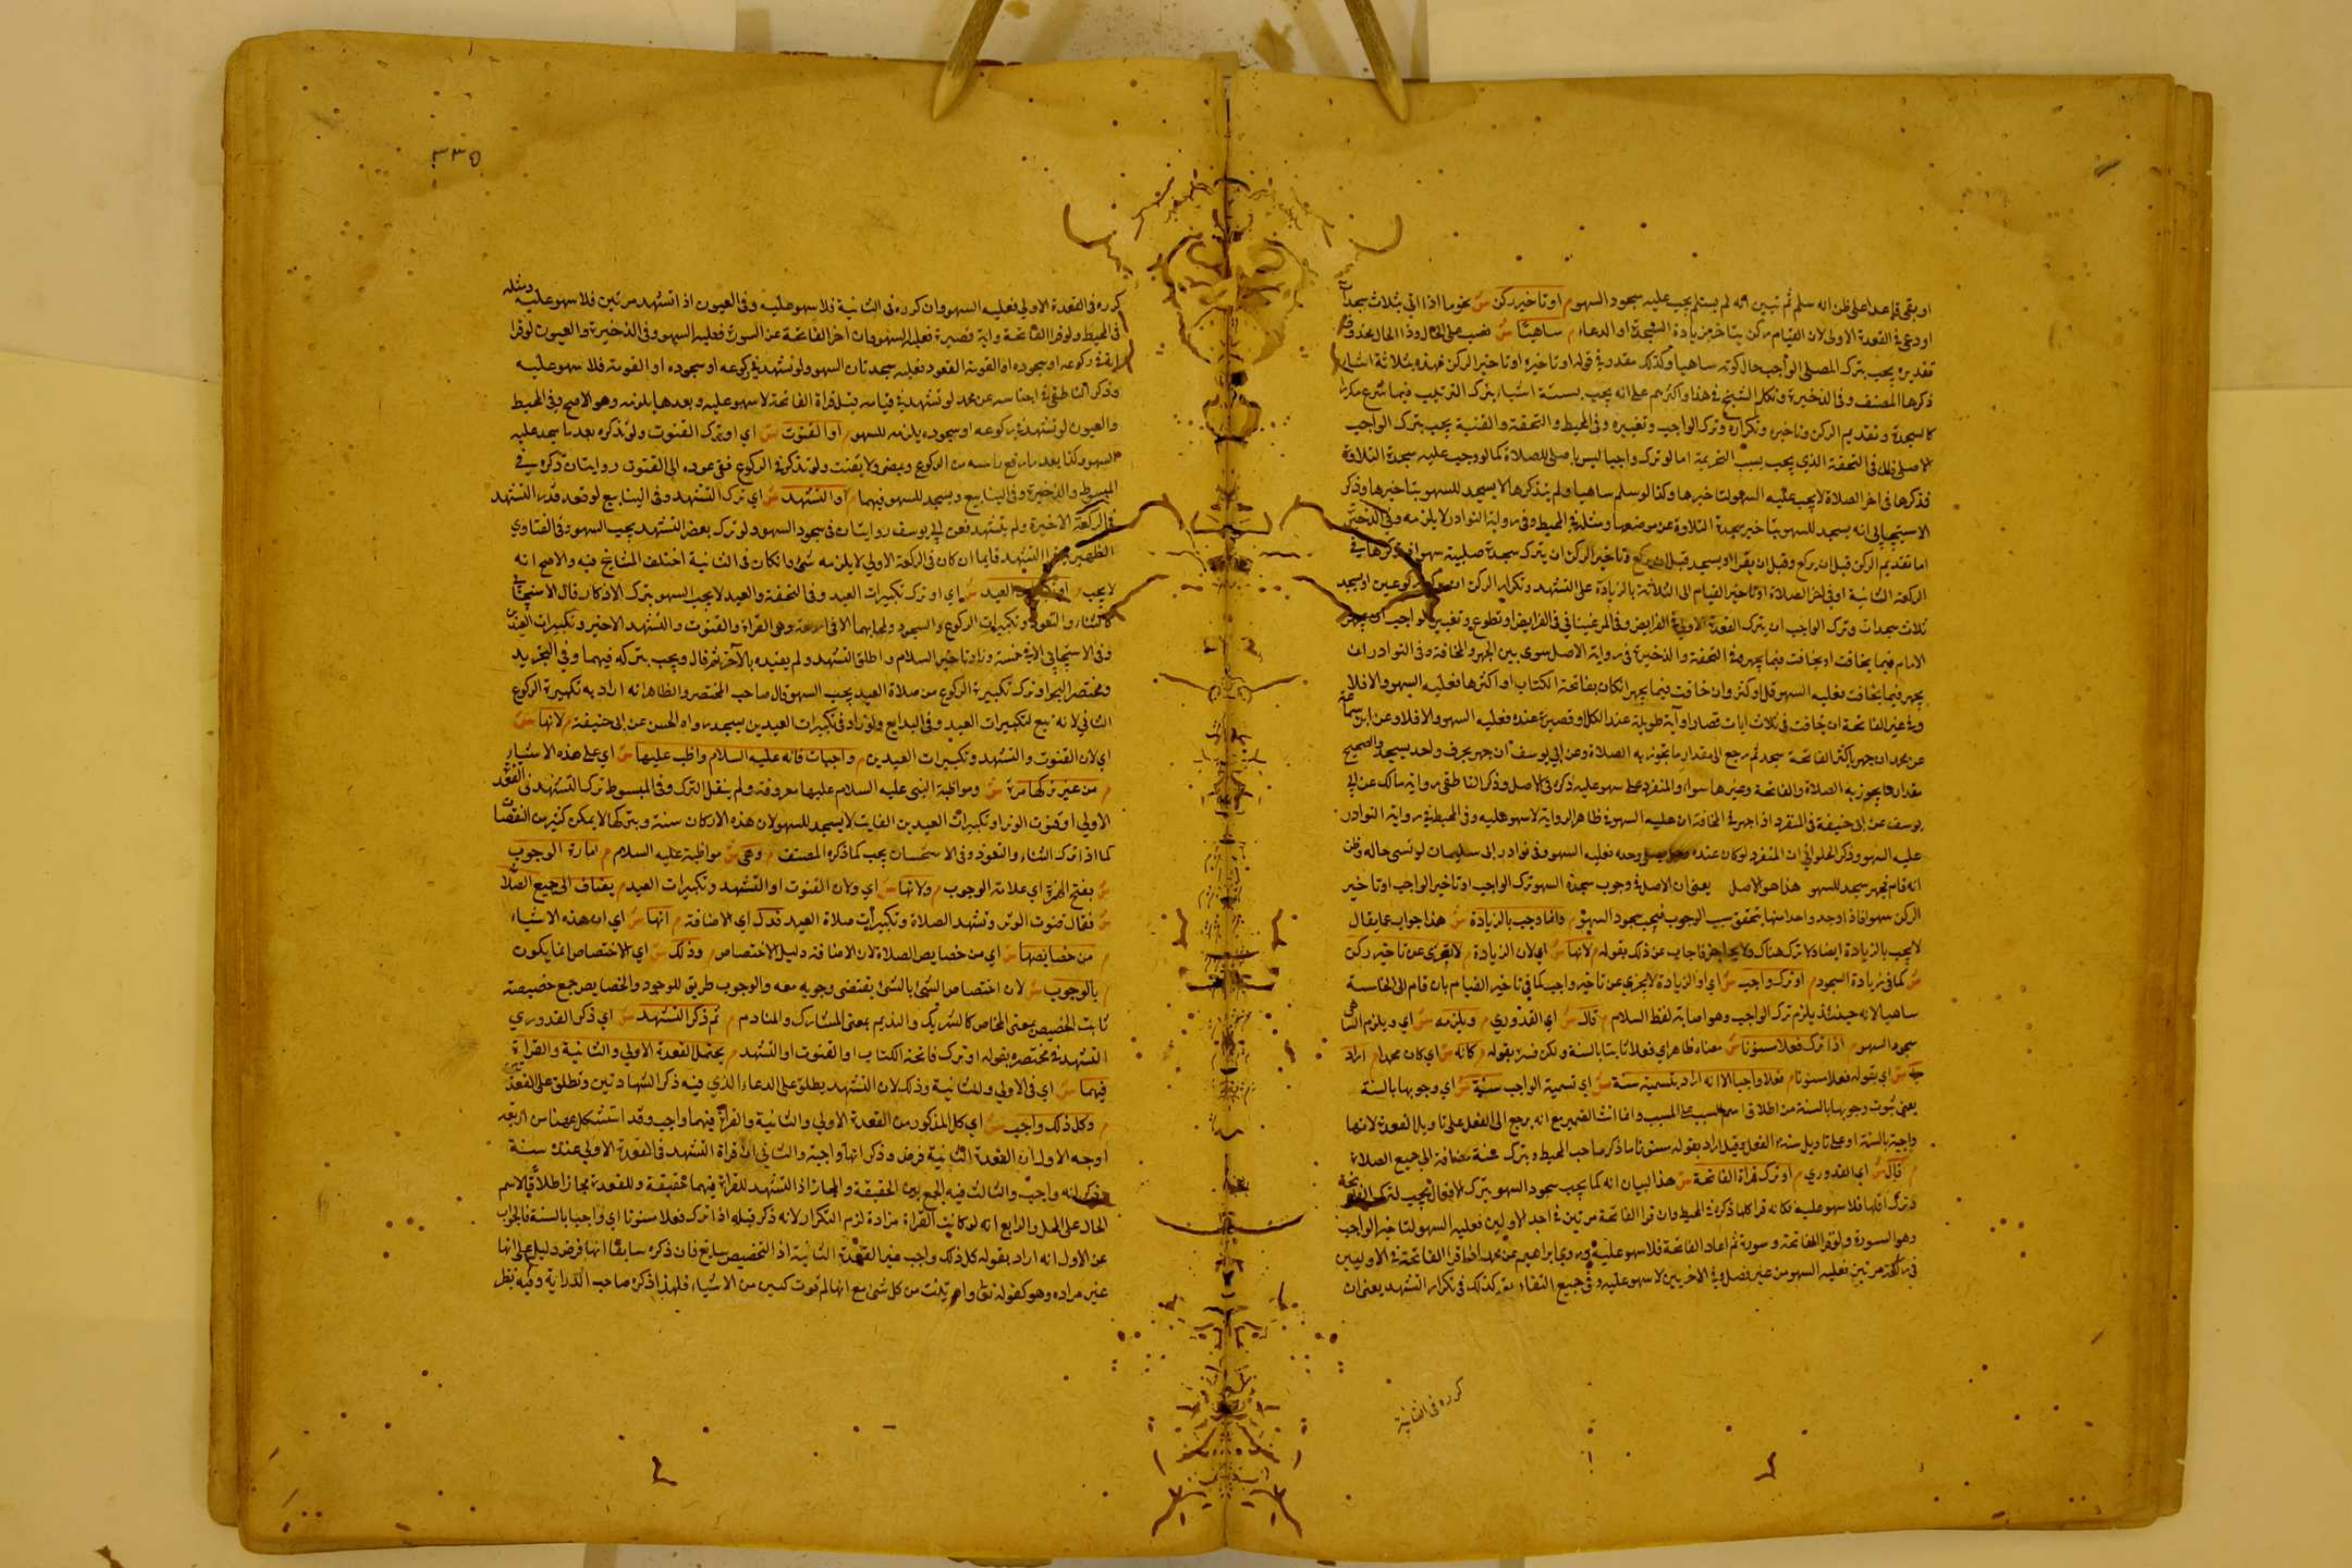 او بقى قاعدا على ظن انه سلم ثم تبين انه لم يسلم يجب عليه سجود السهو م او تاخير ركن س نحو ما اذا اتى بثلاث سجدات
او دعى في القعدة الاولى لان القيام ركن يتاخر من زيادة التشهد او الدعاء م ساهيا س نصب على الحال وذا الحال محذوف
تقديره يجب بترك المصلى الواجب حال كونه ساهيا وكذلك مقدر في قوله او تاخيره او تاخير الركن فهذه ثلاثة اشياء
ذكرها المصنف وفي الذخيرة وتكلم الشيخ في هذا واكثرهم على انه يجب بستة اشياء بترك الترتيب فيما شرع مكررا
كالسجدة وتقديم الركن وتاخيره وتكراره وترك الواجب وتغييره وفي المحيط والتحفة والقنية يجب بترك الواجب
الاصلى في التحفة الذي يجب بسبب التحريمة اما لو ترك واجبا ليس باصلى للصلاة كما لو وجب عليه سجدة التلاوة
فذكرها في اخر الصلاة لا يجب عليه السهو لتاخيرها وكذا لو سلم ساهيا ولم يتذكرها لا يسجد للسهو بتاخيرها وذكر
الاسبيجابي انه يسجد للسهو بتاخير سجدة التلاوة عن موضعها ومثله في المحيط وفي رواية النوادر لا يلزمه وفي الذخيرة
اما تقديم الركن قبل ان يركع وقبل ان يقرا او يسجد قبل ان يركع وتاخير الركن ان يترك سجدة صلبية سهوا فتذكرها في
الركعة الثانية او في اخر الصلاة او تاخير القيام الى الثلاثة بالزيادة على التشهد وتكرار الركن ان يركع ركوعين او يسجد
ثلاث سجدات وترك الواجب ان يترك القعدة الاولى في الفرايض وفي المرغيناني في الفرايض او تطوع وتغيير الواجب ان يجهر
الامام فيما يخافت او يخافت فيما يجهر وفي التحفة والذخيرة في رواية الاصل سوى بين الجهر والمخافتة وفي النوادر ان
يجهر فيما يخافت فعليه السهو قل او كثر وان خافت فيما يجهر ان كان بفاتحة الكتاب او اكثرها فعليه السهو والا فلا
وفي غير الفاتحة ان خافت في ثلاث ايات قصار او آية طويلة عند الكل او قصيرة عنده فعليه السهو والا فلا وعن ابن سماعة
عن محمد ان جهر باكثر الفاتحة سجد ثم رجع الى مقدار ما تجوز به الصلاة وعن ابي يوسف ان جهر بحرف واحد يسجد والصحيح
مقدار ما يجوز به الصلاة والفاتحة وغيرها سواء والمنفرد على سهو عليه ذكره في الاصل وذكر الناطقي رواية مالك عن ابي
يوسف عن ابي حنيفة في المنفرد اذا جهر في المخافتة ان عليه السهو في ظاهر الرواية لا سهو عليه وفي المحيط في رواية النوادر
عليه السهو وذكر الحلواني ان المنفرد لو كان عنده وحده فعليه السهو وفي نوادر ابي سليمان لو نسى حاله وظن
انه قام فجهر سجد للسهو هذا هو الاصل يعني ان الاصل في وجوب سجدة السهو ترك الواجب او تاخير الواجب او تاخير
الركن سهوا فاذا وجد واحد منها يتحقق سبب الوجوب فيجب سجود السهو م وانما وجب بالزيادة س هذا جواب عما يقال
لا يجب بالزيادة ايضا لانه لا ترك هناك ولا تاخير فاجاب عن ذلك بقوله م لانها س اي لان الزيادة م لا تعرى عن تاخير ركن
س كما في زيادة السجود م او ترك واجب س اي او الزيادة لا تعرى عن تاخير واجب كما في تاخير القيام بان قام الى الخامسة
ساهيا لانه حينئذ يلزم ترك الواجب وهو اصابة لفظ السلام م قال س اي القدوري م ويلزمه س اي ويلزم الساهي
سجود السهو م اذا ترك فعلا مسنونا س معناه ظاهر اي فعلا ثابتا بالسنة ولكن فسره بقوله م كانه س اي كان محمدا م اراد
به س اي بقوله فعلا مسنونا م فعلا واجبا الا انه اراد بتسميته سنة س اي تسمية الواجب سنة س اي وجوبها بالسنة
يعني ثبوت وجوبها بالسنة من اطلاق اسم السبب على المسبب وانما انث الضمير مع انه يرجع الى الفعل على تاويل القعدة لانها
واجبة بالسنة او على تاويل سنة الفعل وقيل اراد بقوله مسنونا ما ذكر صاحب المحيط وبترك سنة مضافة الى جميع الصلاة
م قال س اي القدوري م او ترك قراة الفاتحة س هذا لبيان انه كما يجب سجود السهو بترك الافعال يجب لترك الفاتحة
وترك اقلها فلا سهو عليه فكانه قرا كلها ذكره في المحيط وان قرا الفاتحة مرتين في احد الاوليين فعليه السهو لتاخير الواجب
وهو السورة ولو قرا الفاتحة وسورة ثم اعاد الفاتحة فلا سهو عليه وروى ابراهيم عن محمد اذا قرا الفاتحة في الاوليين
في ركعة مرتين فعليه السهو من غير فصل وفي الاخريين لا سهو عليه وفي جميع التفاريق كذلك في تكرار التشهد يعني ان
كرره في الثانية
٣٣٥
كرره في القعدة الاولى فعليه السهو وان كرره في الثانية فلا سهو عليه وفي العيون اذا تشهد مرتين فلا سهو عليه ومثله
في المحيط ولو قرا الفاتحة واية قصيرة فعليه السهو وان اخر الفاتحة عن السورة فعليه السهو وفي الذخيرة والعيون لو قرا
اية في ركوعه او سجوده او القومة القعود فعليه سجدتان السهو ولو تشهد في ركوعه او سجوده او القومة فلا سهو عليه
وذكر الناطقي في اجناسه عن محمد لو تشهد في قيامه قبل قراة الفاتحة لا سهو عليه وبعدها يلزمه وهو الاصح وفي المحيط
والعيون لو تشهد في ركوعه او سجوده يلزمه للسهو م او القنوت س اي او ترك القنوت ولو تذكره بعد ما سجد عليه
السهو وكذا بعد ما رفع راسه من الركوع ويمضى ولا يقنت ولو تذكر في الركوع ففي عوده الى القنوت روايتان ذكره في
المبسوط والذخيرة وفي الينابيع ويسجد للسهو فيهما م او التشهد س اي ترك التشهد وفي الينابيع لو قعد قدر التشهد
في الركعة الاخيرة ولم يتشهد فعن ابي يوسف روايتان في سجود السهو ولو ترك بعض التشهد يجب السهو وفي الفتاوي
الظهيرية قرا التشهد قايما ان كان في الركعة الاولى لا يلزمه شئ وان كان في الثانية اختلف المشايخ فيه والاصح انه
لا يجب م او تكبيرات العيد س اي او ترك تكبيرات العيد وفي التحفة والعيد لا يجب السهو بترك الاذكار قال الاسبيجابي
كالثناء والتعوذ وتكبيرات الركوع والسجود وتسبيحاتهما الا في اربعة وهي القراة والقنوت والتشهد الاخير وتكبيرات العيدين
وفي الاسبيجابي الا في خمسة وزاد تاخير السلام واطلق التشهد ولم يقيده بالاخير ثم قال ويجب بتركه فيهما وفي التجريد
ومختصر البحر او ترك تكبيرة الركوع من صلاة العيد يجب السهو قال صاحب المختصر والظاهر انه اراد به تكبيرة الركوع
الثاني لانه تبع لتكبيرات العيد وفي البدايع ولو زاد في تكبيرات العيدين يسجد رواه الحسن عن ابي حنيفة م لانها س
اي لان القنوت والتشهد وتكبيرات العيدين م واجبات فانه عليه السلام واظب عليها س اي على هذه الاشياء
م من غير تركها مرة س ومواظبة النبي عليه السلام عليها معروفة ولم ينقل الترك وفي المبسوط ترك التشهد في القعدة
الاولى او قنوت الوتر او تكبيرات العيدين القياس لا يسجد للسهو لان هذه الاركان سنة وبتركها لا يمكن كثير من النقصان
كما اذا ترك الثناء والتعوذ وفي الاستحسان يجب كما ذكره المصنف م وهي س مواظبته عليه السلام م امارة الوجوب
س بفتح الهمزة اي علامة الوجوب م ولانها س اي ولان القنوت او التشهد وتكبيرات العيد م يضاف الى جميع الصلاة
س فقال قنوت الوتر وتشهد الصلاة وتكبيرات صلاة العيد فدل اي الاضافة م انها س اي ان هذه الاشياء
م من خصايصها س اي من خصايص الصلاة لان الاضافة دليل الاختصاص م وذلك س اي الاختصاص انما يكون
م بالوجوب س لان اختصاص الشئ بالشئ يقتضي وجوبه معه والوجوب طريق للوجود والخصايص جمع خصيصة
ثابت الخصيص بمعنى الخاص كالشريك والنديم بمعنى المشارك والمنادم م ثم ذكر التشهد س اي ذكر القدوري
التشهد في مختصره بقوله او ترك فاتحة الكتاب او القنوت او التشهد م يحتمل القعدة الاولى والثانية والقراة
فيهما س اي في الاولى والثانية وذلك لان التشهد يطلق على الدعاء الذي فيه ذكر الشهادتين ويطلق على القعدتين
م وكل ذلك واجب س اي كل المذكور من القعدة الاولى والثانية والقراة فيهما واجب وقد استشكل ههنا من اربعة
اوجه الاول ان القعدة الثانية فرض وذكر انها واجبة والثاني ان قراة التشهد في القعدة الاولى عنده سنة
وذكر انه واجب والثالث فيه الجمع بين الحقيقة والمجاز اذ التشهد للقراة فيهما حقيقة وللقعدة مجاز اطلاقا لاسم
الحال على المحل والرابع انه لو كانت القراة مرادة لزم التكرار لانه ذكر قبله اذا ترك فعلا مسنونا اي واجبا بالسنة فالجواب
عن الاول انه اراد بقوله كل ذلك واجب غير القعدة الثانية اذ التخصيص سايغ فان ذكره سابقا انها فرض دليل على انها
غير مراده وهو كقوله تعالى واوتيت من كل شئ مع انها لم توت كثير من الاشياء فلهذا ذكره صاحب الدراية وفيه نظر